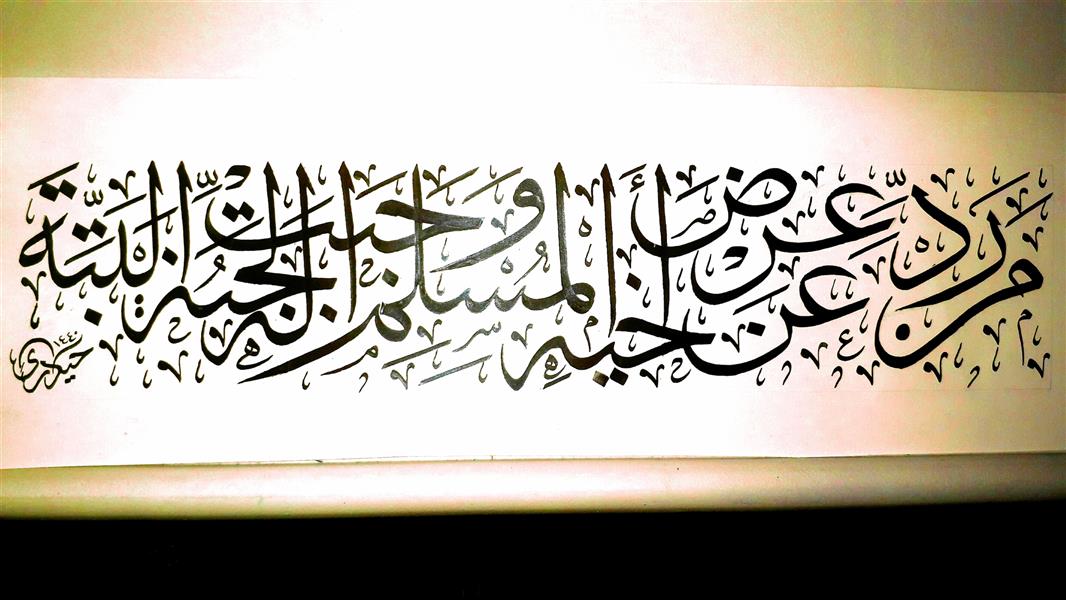 من ردّ عن عرض أخيه المسلم وجبت له الجنة البتة
حيدري ١٤٤٠